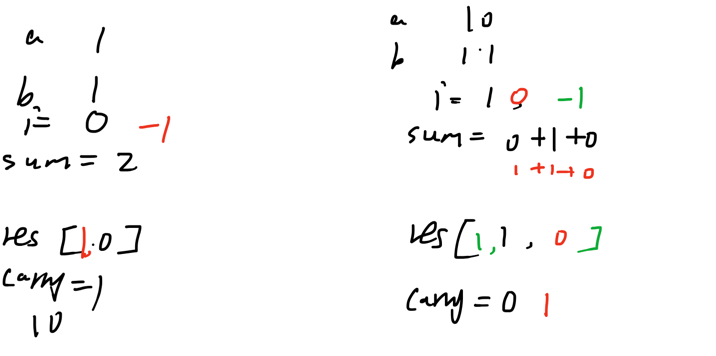 a 1
b 1
i = 0 -1
sum = 2
res [1, 0]
carry = 1
10
a 10
b 1 1
i = 1 0 -1
sum = 0 + 1 + 0
1 + 1 + 0
res [1, 1, 0]
carry = 0 1